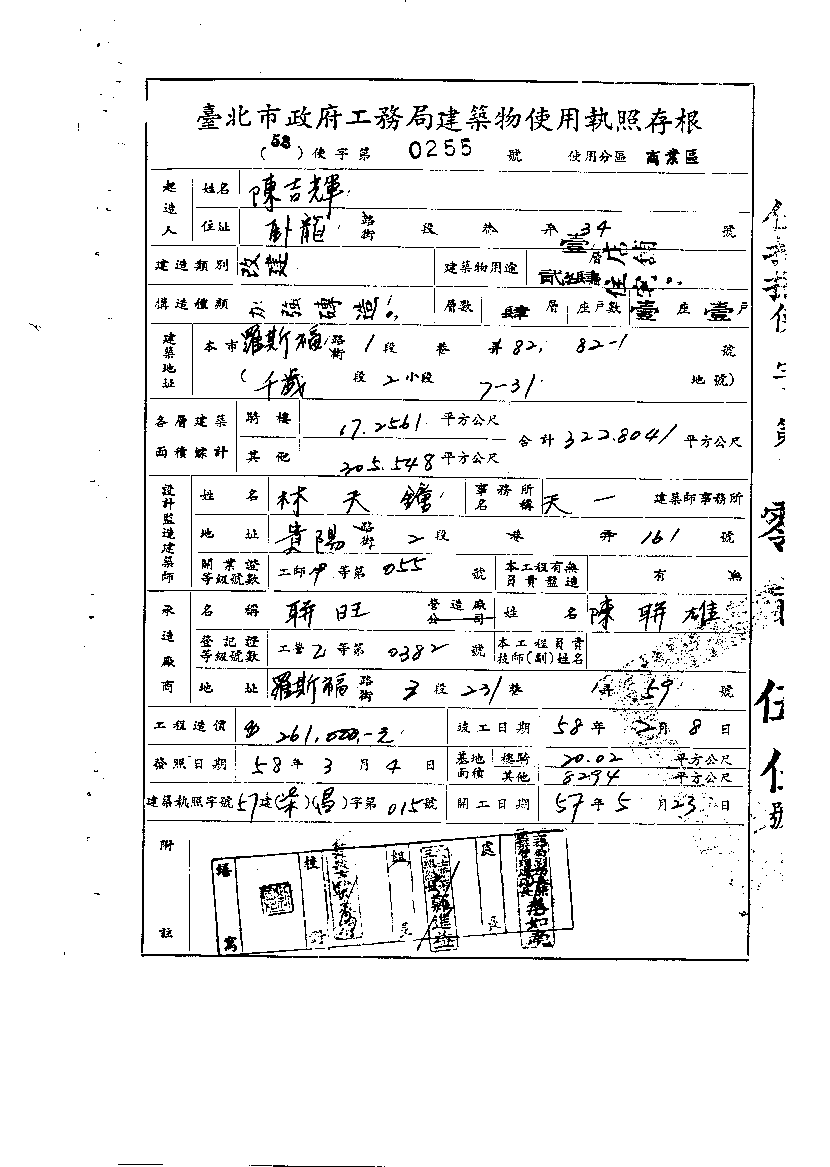 臺北市政府工務局建築物使用執照存根
(58)使字第 0255 號 使用分區 商業區
起造人 姓名 陳吉輝
住址 臥龍 路街 段 巷 弄 34 號
建造類別 改建 建築物用途 壹層店鋪 貳至肆 住家
構造種類 加強磚造 層數 肆 層 座戶數 壹 座 壹 戶
建築地址 本市 羅斯福 路街 1 段 巷 弄 82, 82-1 號
(千歲 段 2 小段 7-31 地號)
各層建築面積総計 騎樓 17.2561 平方公尺 合計 322.8041 平方公尺
其他 305.548 平方公尺
設計監造建築師 姓名 林天 事務所名稱 天一 建築師事務所
地址 貴陽 路街 2 段 巷 弄 161 號
開業證等級號數 工師 甲 等第 055 號 本工程有無負責監造 有 無
承造廠商 名稱 聯旺 營造廠公司 姓名 陳聯雄
登記證等級號數 工營 乙 等第 0382 號 本工程負責技師(副)姓名
地址 羅斯福 路街 3 段 231 巷 1 弄 59 號
工程造價 261,000,-元 竣工日期 58 年 2 月 8 日
發照日期 58 年 3 月 4 日 基地面積 總騎 20.02 平方公尺
其他 8294 平方公尺
建築執照字號 57 建( )( )字第 015 號 開工日期 57 年 5 月 23 日
附註
繕寫 校對 組長 處長
零